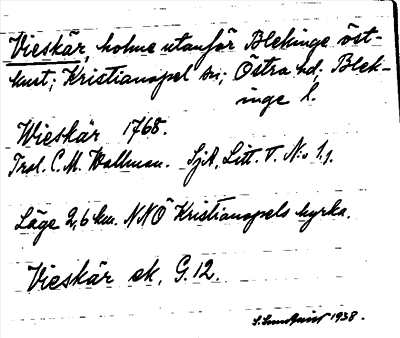 Vieskär, holme utanför Blekinge öst-
kust; Kristianopel sn; Östra hd; Blek-
inge l.
Wieskär 1768.
Trol. C. M. Wallman. SjA, Litt. V. N:o 19.
Läge 2,6 km. NNÖ Kristianopels kyrka.
Vieskär ek. G. 12.
1938.